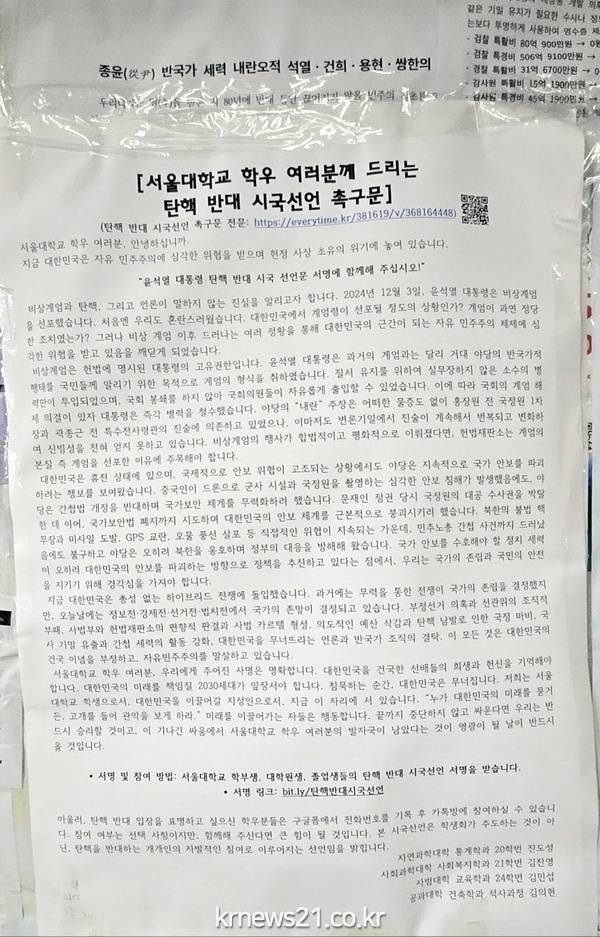 종윤(從尹) 반국가 세력 내란오적 석열·건희·용현·쌍한의
같은 기밀 유지가 필요한 수사나 정보
는보다 투명하게 사용하여 영수증 제
- 검찰 특활비 80억 900만원 → 0원
- 검찰 특경비 506억 9100만원 →
- 경찰 특활비 31억 6700만원 → 0
- 감사원 특활비 15억 1900만원 →
- 감사원 특경비 45억 1900만원 →
[서울대학교 학우 여러분께 드리는
탄핵 반대 시국선언 촉구문]
(탄핵 반대 시국선언 촉구문 전문: https://everytime.kr/381619/v/368164448)
서울대학교 학우 여러분, 안녕하십니까.
지금 대한민국은 자유 민주주의에 심각한 위협을 받으며 헌정 사상 초유의 위기에 놓여 있습니다.
"윤석열 대통령 탄핵 반대 시국 선언문 서명에 함께해 주십시오!"
비상계엄과 탄핵, 그리고 언론이 말하지 않는 진실을 알리고자 합니다. 2024년 12월 3일, 윤석열 대통령은 비상계엄
을 선포했습니다. 처음엔 우리도 혼란스러웠습니다. 대한민국에서 계엄령이 선포될 정도의 상황인가? 계엄이 과연 정당
한 조치였는가? 그러나 비상 계엄 이후 드러나는 여러 정황을 통해 대한민국의 근간이 되는 자유 민주주의 체제에 심
각한 위협을 받고 있음을 깨닫게 되었습니다.
비상계엄은 헌법에 명시된 대통령의 고유권한입니다. 윤석열 대통령은 과거의 계엄과는 달리 거대 야당의 반국가적
행태를 국민들께 알리기 위한 목적으로 계엄의 형식을 취하였습니다. 질서 유지를 위하여 실무장하지 않은 소수의 병
력만이 투입되었으며, 국회 봉쇄를 하지 않아 국회의원들이 자유롭게 출입할 수 있었습니다. 이에 따라 국회의 계엄 해
제 의결이 있자 대통령은 즉각 병력을 철수했습니다. 야당의 "내란" 주장은 어떠한 물증도 없이 홍장원 전 국정원 1차
장과 곽종근 전 특수전사령관의 진술에 의존하고 있었으나, 이마저도 변론기일에서 진술이 계속해서 번복되고 변화하
여 신빙성을 전혀 얻지 못하고 있습니다. 비상계엄의 행사가 합법적이고 평화적으로 이뤄졌다면, 헌법재판소는 계엄의
본질 즉 계엄을 선포한 이유에 주목해야 합니다.
대한민국은 휴전 상태에 있으며, 국제적으로 안보 위협이 고조되는 상황에서도 야당은 지속적으로 국가 안보를 파괴
하려는 행보를 보여왔습니다. 중국인이 드론으로 군사 시설과 국정원을 촬영하는 심각한 안보 침해가 발생했음에도, 야
당은 간첩법 개정을 반대하며 국가보안 체계를 무력화하려 했습니다. 문재인 정권 당시 국정원의 대공 수사권을 박탈
한 데 이어, 국가보안법 폐지까지 시도하며 대한민국의 안보 체계를 근본적으로 붕괴시키려 했습니다. 북한의 불법 핵
무장과 미사일 도발, GPS 교란, 오물 풍선 살포 등 직접적인 위협이 지속되는 가운데, 민주노총 간첩 사건까지 드러났
음에도 불구하고 야당은 오히려 북한을 옹호하며 정부의 대응을 방해해 왔습니다. 국가 안보를 수호해야 할 정치 세력
이 오히려 대한민국의 안보를 파괴하는 방향으로 정책을 추진하고 있다는 점에서, 우리는 국가의 존립과 국민의 안전
을 지키기 위해 경각심을 가져야 합니다.
지금 대한민국은 총성 없는 하이브리드 전쟁에 돌입했습니다. 과거에는 무력을 통한 전쟁이 국가의 존립을 결정했지
만, 오늘날에는 정보전·경제전·선거전·법치전에서 국가의 존망이 결정되고 있습니다. 부정선거 의혹과 선관위의 조직적
부패, 사법부와 헌법재판소의 편향적 판결과 사법 카르텔 형성, 의도적인 예산 삭감과 탄핵 남발로 인한 국정 마비, 국
사 기밀 유출과 간첩 세력의 활동 강화, 대한민국을 무너뜨리는 언론과 반국가 조직의 결탁. 이 모든 것은 대한민국의
건국 이념을 부정하고, 자유민주주의를 말살하고 있습니다.
서울대학교 학우 여러분, 우리에게 주어진 사명은 명확합니다. 대한민국을 건국한 선배들의 희생과 헌신을 기억해야
합니다. 대한민국의 미래를 책임질 2030세대가 앞장서야 합니다. 침묵하는 순간, 대한민국은 무너집니다. 저희는 서울
대학교 학생으로서, 대한민국을 이끌어갈 지성인으로서, 지금 이 자리에 서 있습니다. "누가 대한민국의 미래를 묻거
든, 고개를 들어 관악을 보게 하라." 미래를 이끌어가는 자들은 행동합니다. 끝까지 중단하지 않고 싸운다면 우리는 반
드시 승리할 것이고, 이 기나긴 싸움에서 서울대학교 학우 여러분의 발자국이 남았다는 것이 영광이 될 날이 반드시
올 것입니다.
• 서명 및 참여 방법: 서울대학교 학부생, 대학원생, 졸업생들의 탄핵 반대 시국선언 서명을 받습니다.
• 서명 링크: bit.ly/탄핵반대시국선언
아울러, 탄핵 반대 입장을 표명하고 싶으신 학우분들은 구글폼에서 전화번호를 기록 후 카톡방에 참여하실 수 있습니
다. 참여 여부는 선택 사항이지만, 함께해 주신다면 큰 힘이 될 것입니다. 본 시국선언은 학생회가 주도하는 것이 아
닌, 탄핵을 반대하는 개개인의 자발적인 참여로 이루어지는 선언임을 밝힙니다.
자연과학대학 통계학과 20학번 진도성
사회과학대학 사회복지학과 21학번 김찬영
사범대학 교육학과 24학번 김민섭
공과대학 건축학과 석사과정 김의현
krnews21.co.kr